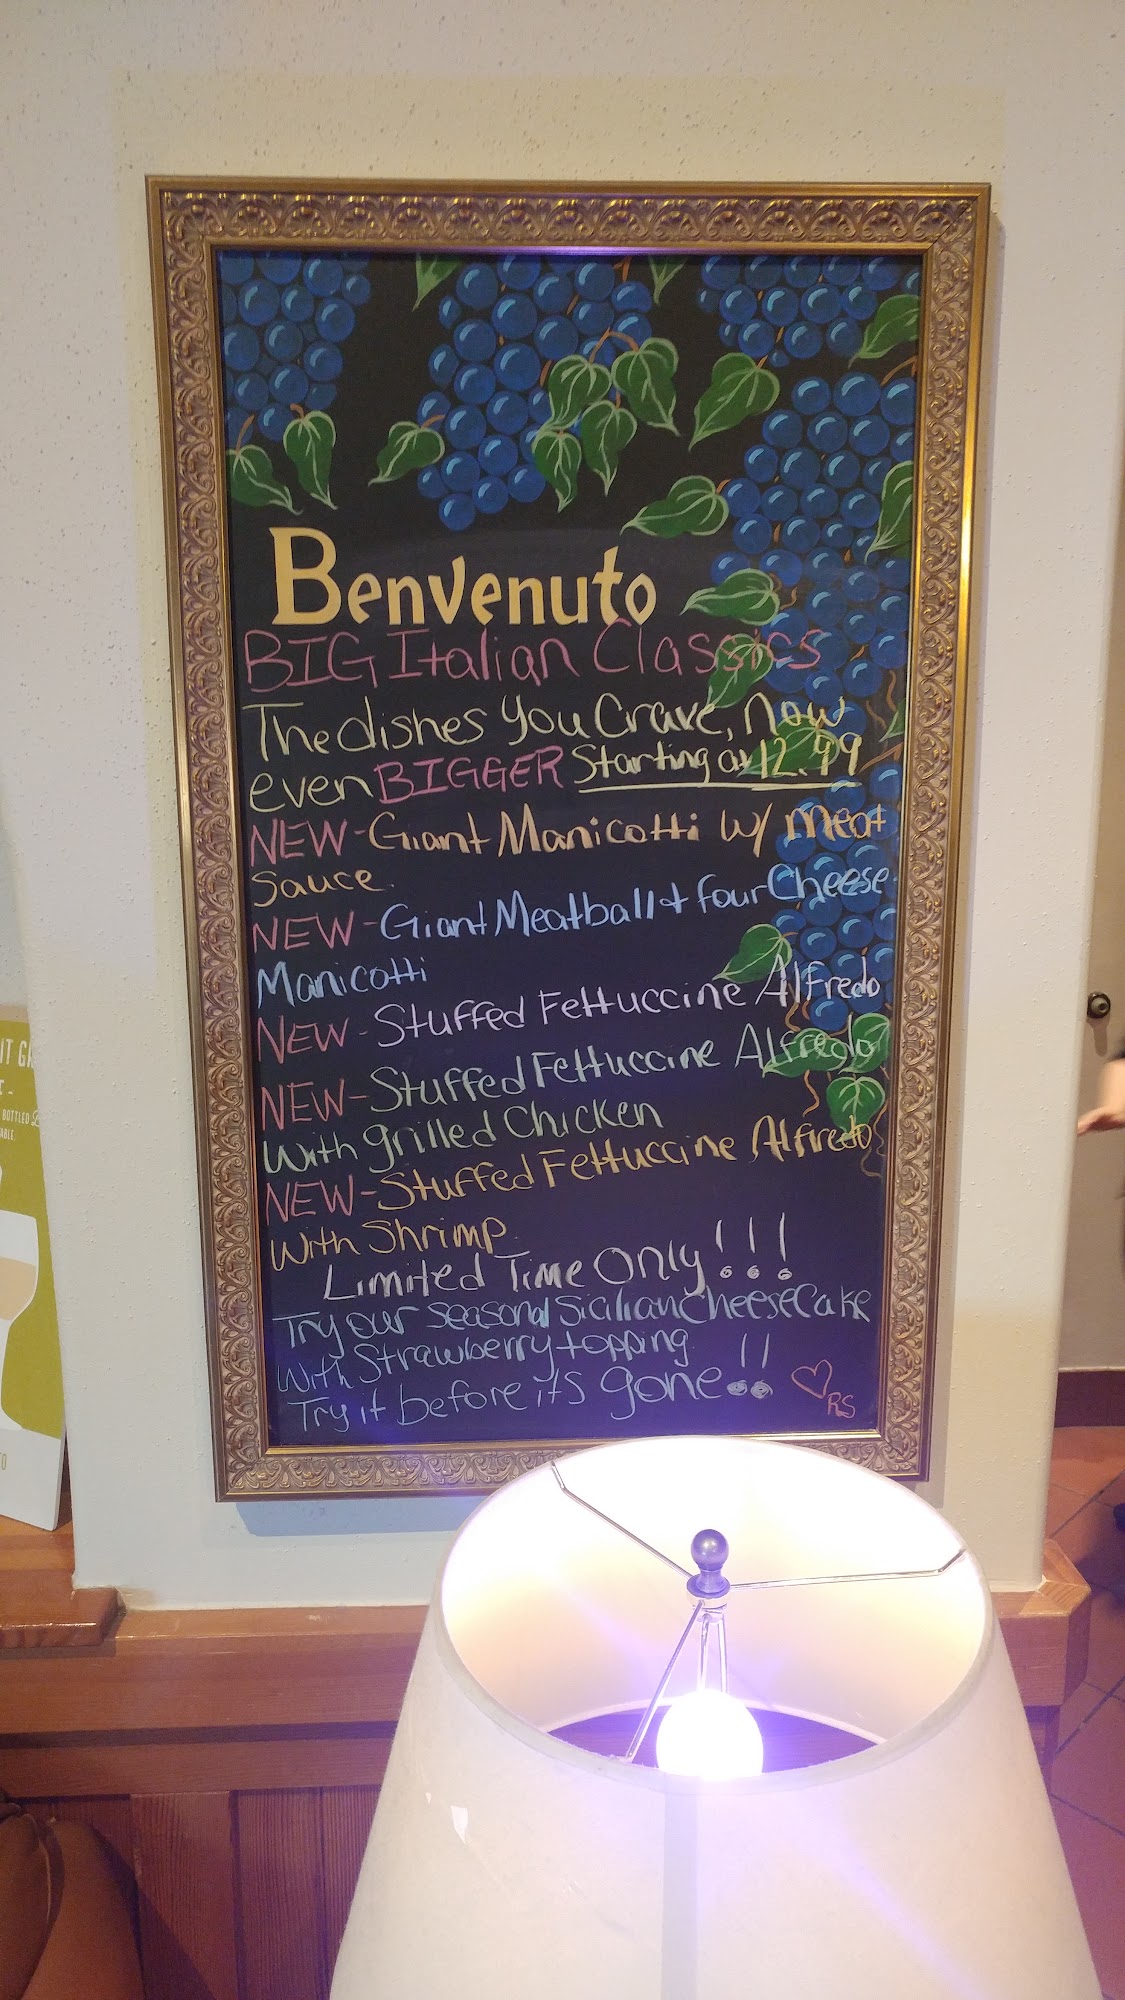 Benvenuto
BIG Italian Classics
The dishes you Crave, now
even BIGGER Starting at 12.99
NEW-Giant Manicotti w/ meat
sauce.
NEW-Giant Meatball & four Cheese
Manicotti
NEW-Stuffed Fettuccine Alfredo
NEW-Stuffed Fettuccine Alfredo
With grilled Chicken
NEW-Stuffed Fettuccine Alfredo
With Shrimp.
Limited Time Only!!!
Try our seasonal Sicilian CheeseCake
With Strawberry topping.
Try it before it's gone!!
RS
BOTTLED